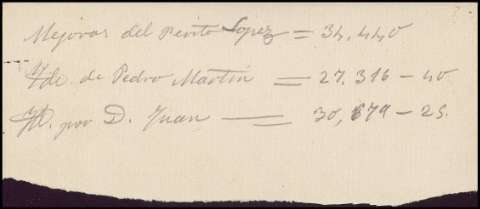 Mejoras del Perito Lopez = 34.440
Yd. de Pedro Martin = 27.316 - 40
Yd. por D. Juan = 30,679 - 25.